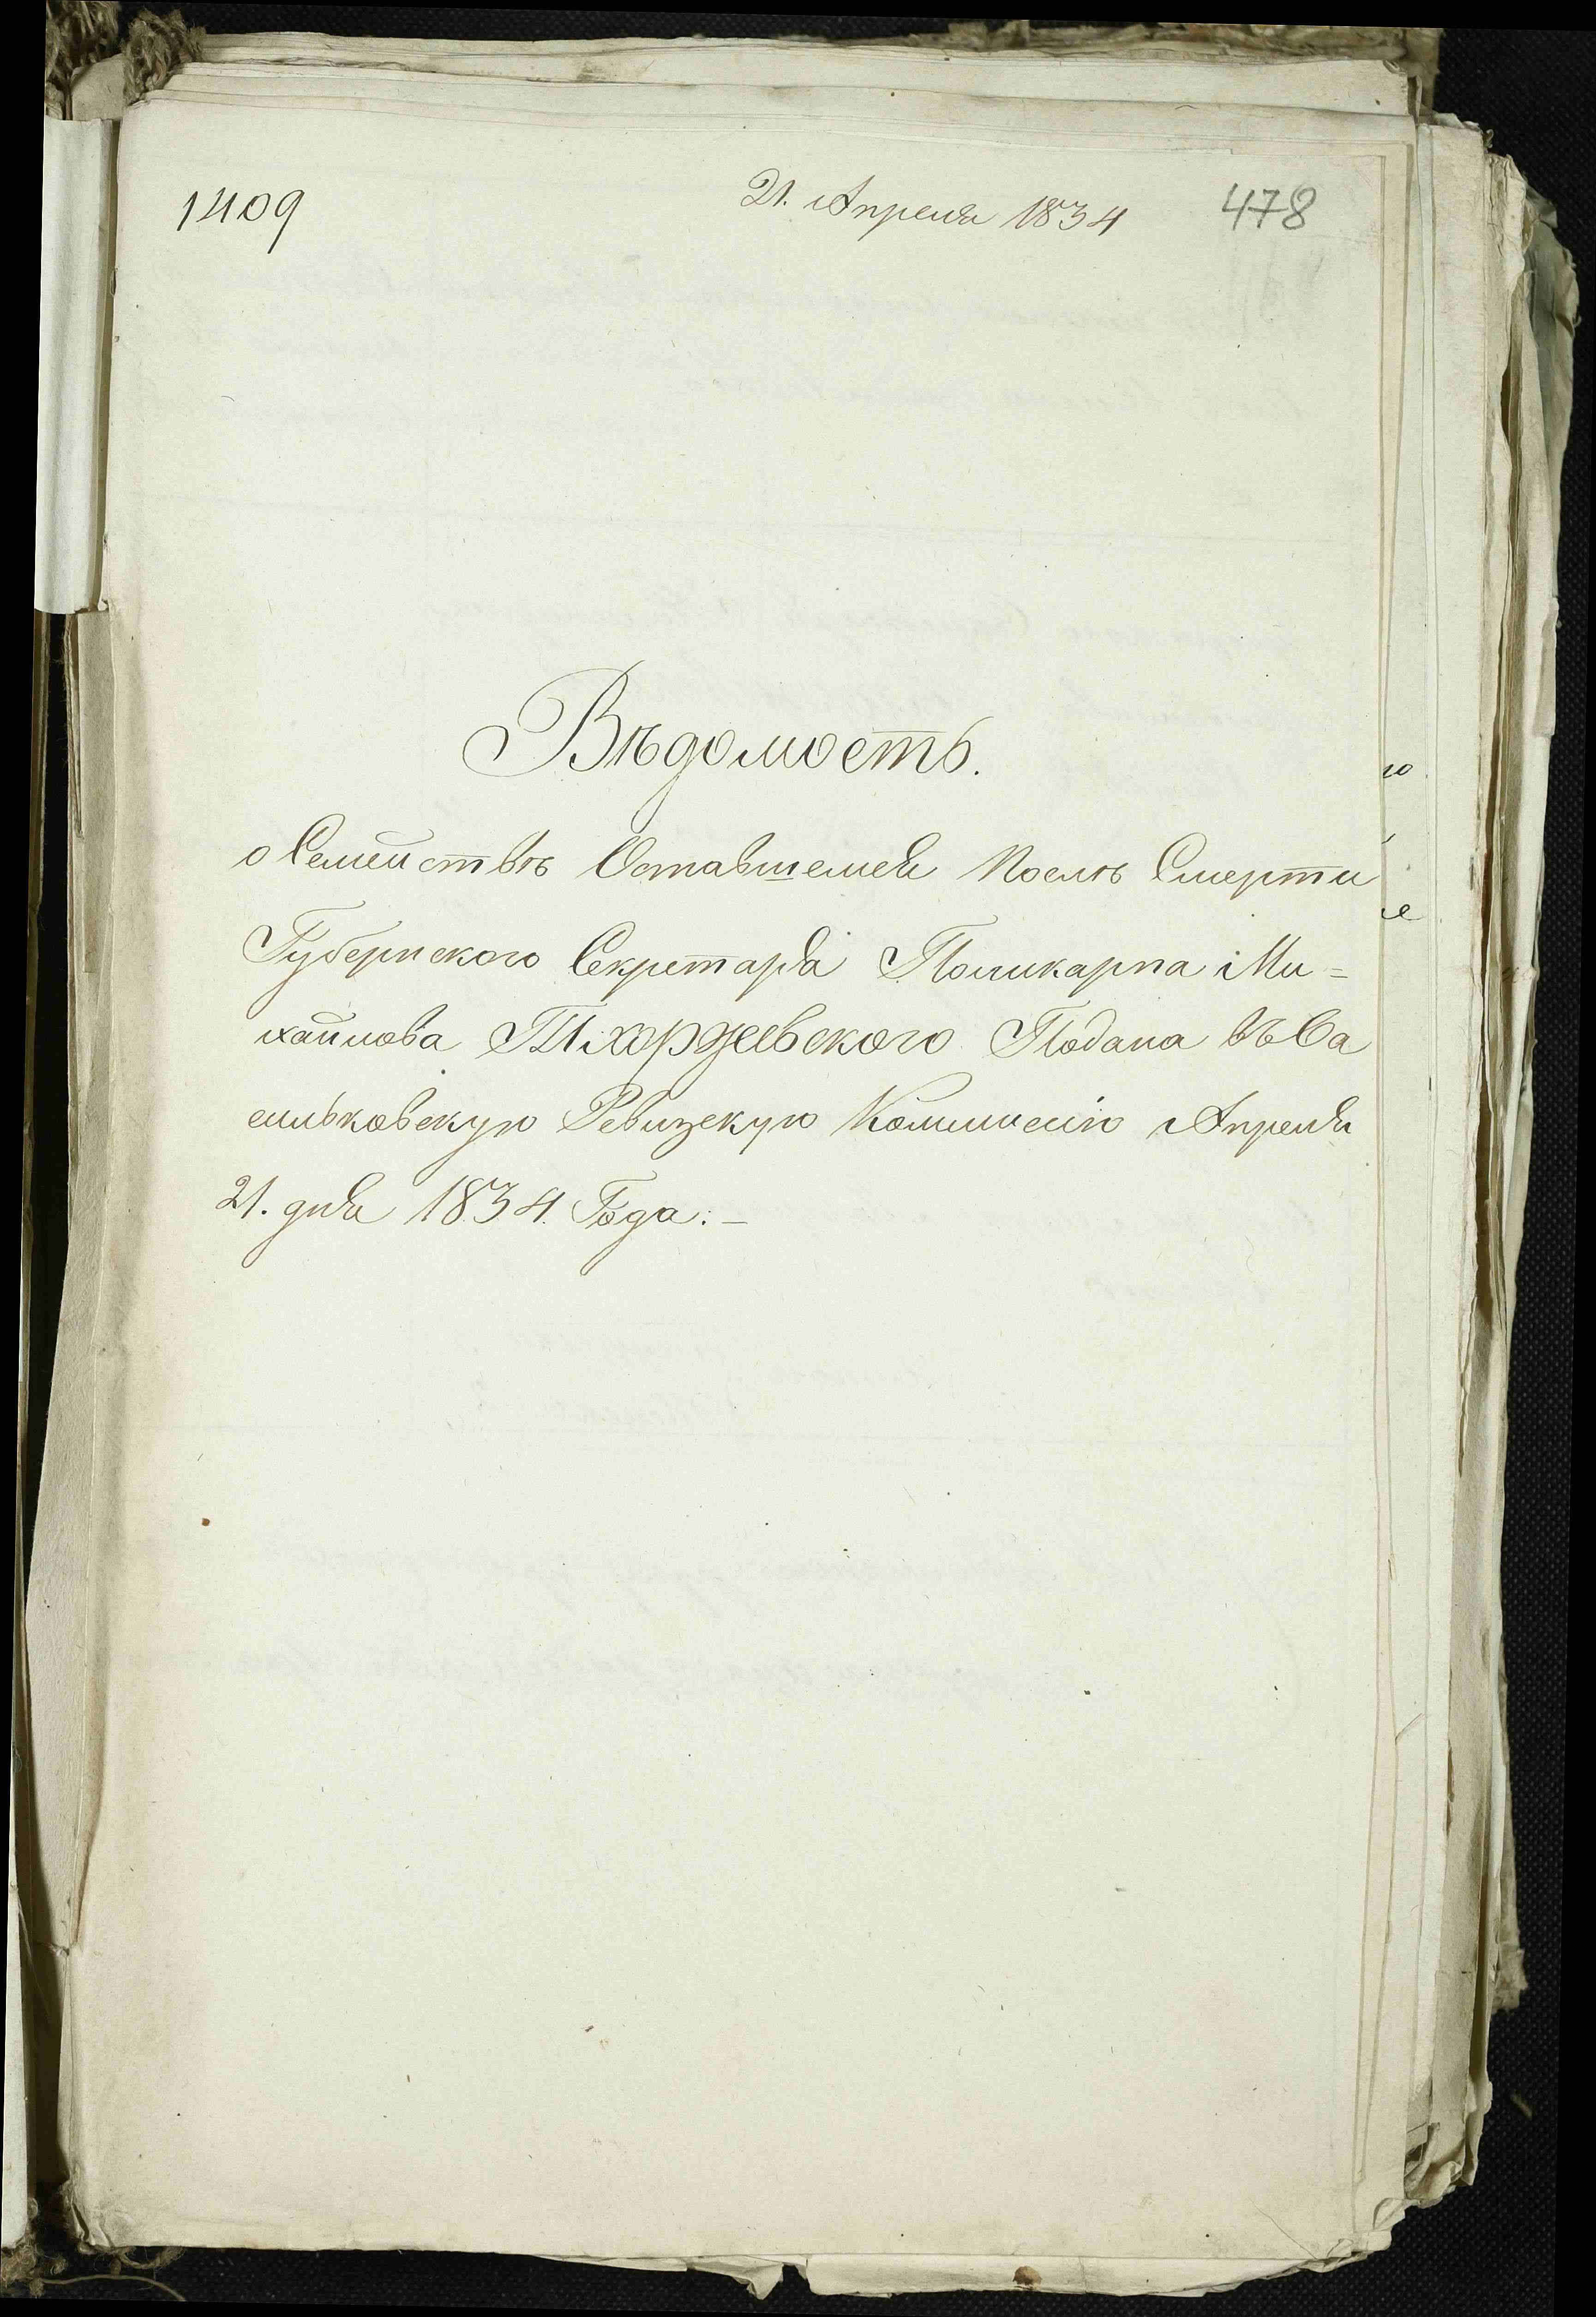 1409 21. Апреля 1834 478
Вѣдомость.
о Семействѣ Оставшемся Послѣ Смерти
Губернского Секретаря Поликарпа Ми=
хайлова Тхоржевского Подана въ Ва
сильковскую Ревизскую Коммиссію Апреля
21. дня 1834. Года.–